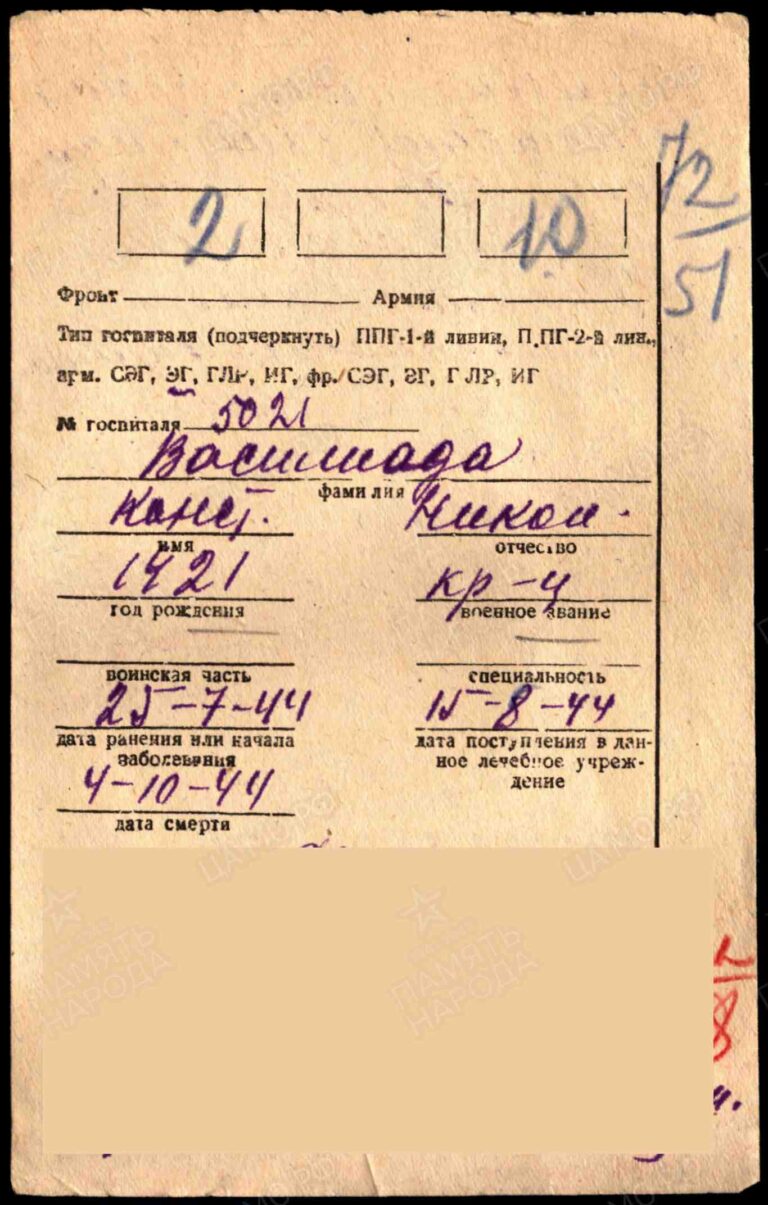 72
2 10
51
Фронт Армия
Тип госпиталя (подчеркнуть) ППГ-1-й линии, П.ПГ-2-й лин.,
арм. СЭГ, ЭГ, ГЛР, ИГ, фр. СЭГ, ЭГ, ГЛР, ИГ
№ госпиталя 5021
Василиада
фамилия
Конст. Никол.
имя отчество
1921 кр-ц
год рождения военное звание
воинская часть специальность
25-7-44 15-8-44
дата ранения или начала заболевания дата поступления в данное лечебное учреждение
4-10-44
дата смерти
ПАМЯТЬ НАРОДА ПАМЯТЬ НАРОДА